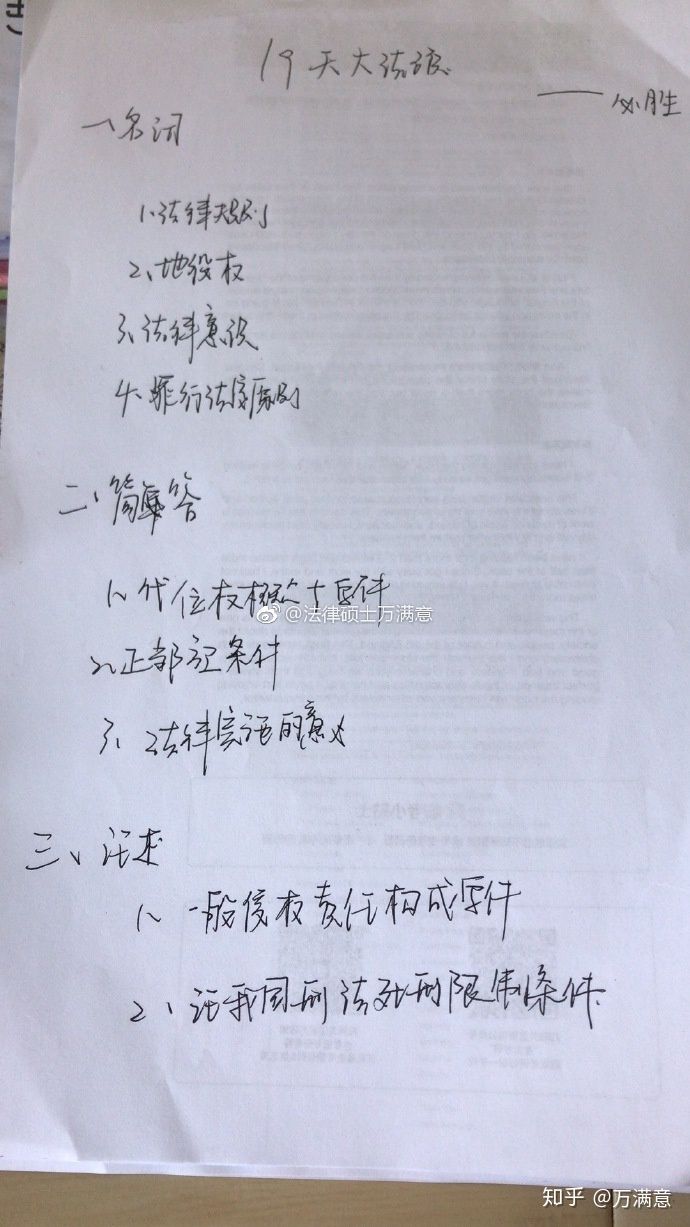 19天大法硕
——必胜
一、名词
1、法律规则
2、地役权
3、法律意识
4、罪行法定原则
二、简答
1、代位权概念+要件
@法律硕士万满意
2、正条件
3、法律的意义
三、论述
1、一般侵权责任构成要件
2、论我国刑法死刑限制条件
知乎 @万满意